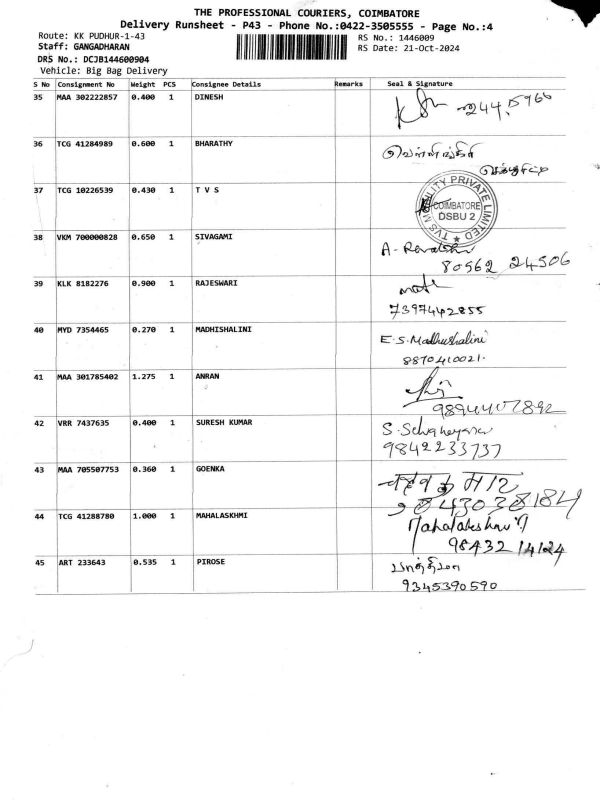 THE PROFESSIONAL COURIERS, COIMBATORE
Delivery Runsheet - P43 - Phone No.:0422-3505555 - Page No.:4
Route: KK PUDHUR-1-43 RS No.: 1446009
Staff: GANGADHARAN RS Date: 21-Oct-2024
DRS No.: DCJB144600904
Vehicle: Big Bag Delivery
S No Consignment No Weight PCS Consignee Details Remarks Seal & Signature
35 MAA 302222857 0.400 1 DINESH
36 TCG 41284989 0.600 1 BHARATHY
37 TCG 10226539 0.430 1 T V S
TVS MOBILITY PRIVATE LIMITED
COIMBATORE
DSBU 2
38 VKM 700000828 0.650 1 SIVAGAMI A- Revathi
80562 24506
39 KLK 8182276 0.900 1 RAJESWARI
7397442855
40 MYD 7354465 0.270 1 MADHISHALINI E.S.Madhushalini
8870410021.
41 MAA 301785402 1.275 1 ANRAN
9894407892
42 VRR 7437635 0.400 1 SURESH KUMAR
9842233737
43 MAA 705507753 0.360 1 GOENKA
44 TCG 41288780 1.000 1 MAHALASKHMI
98432 14124
45 ART 233643 0.535 1 PIROSE
9345390590